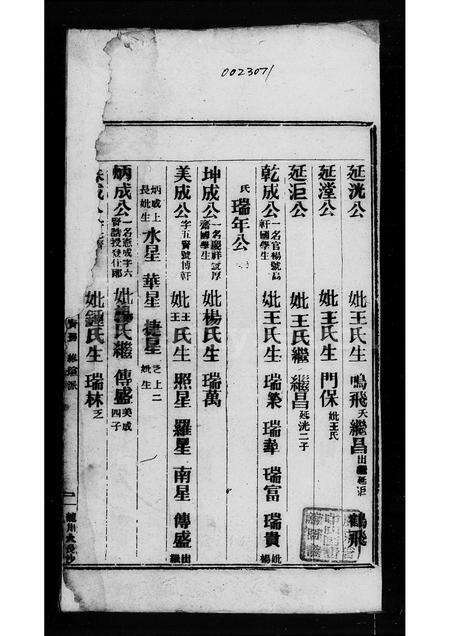 002307/
延洸公 妣王氏生 鳴飛夭 繼昌出繼延洰 鶴飛
延瀅公 妣王氏生 門保妣王氏
延洰公 妣王氏繼 繼昌延洸二子
乾成公一名官楊號為軒國學生 妣王氏生 瑞榮 瑞犂 瑞富 瑞貴妣楊
氏 瑞年公
坤成公一名慶祥號厚齋國學生 妣楊氏生 瑞萬
美成公字五賢號博軒 妣王王氏生 照星 羅星 南星 傳盛出繼
炳成上長妣生 水星 華星 捷星乏上二妣生
炳成公一名憲成字六賢請授登仕郎 妣氏繼 傳盛美成四子
成公 妣氏生 瑞林乏